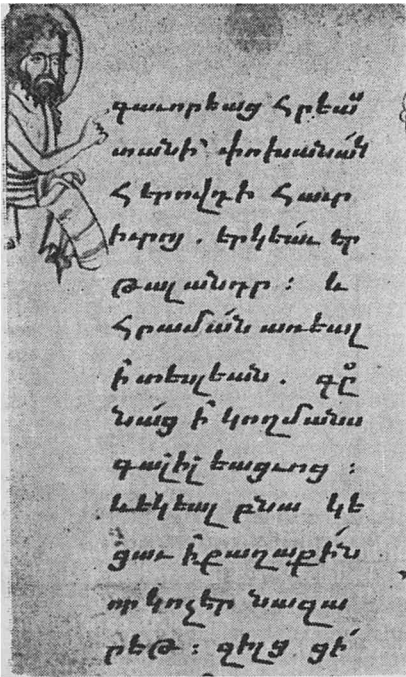 գաւորեաց հրէաս
տանի փոխանակ
հերովդի հաւր
իւրոյ . երկեաւ եր
թալ անդր : և
հրաման առեալ
ի տեսլեան . գը
նաց ի կողմանս
գալիլեացւոց :
և եկեալ բնակե
ցաւ ի քաղաքին
որ կոչեր նազա
րեթ : զի լցցի